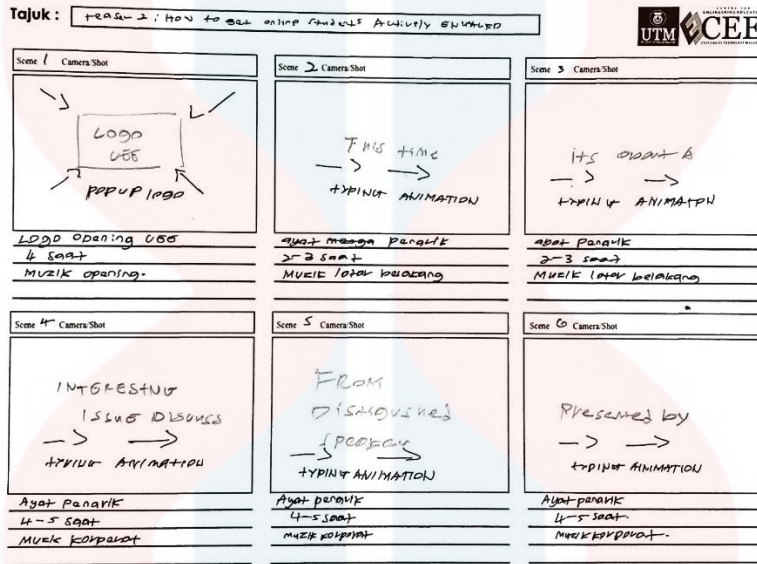 Tajuk : teaser 2 : HOW to get online students Actively ENGAGED
UTM CEE
Scene 1 Camera/Shot
LOGO
CEE
POPUP logo
LOGO opening CEE
4 saat
Muzik opening.
Scene 2 Camera/Shot
This time
TYPING ANIMATION
ayat penarik
2-3 saat
Muzik latar belakang
Scene 3 Camera/Shot
its about
TYPING ANIMATION
ayat Penarik
2-3 saat
Muzik latar belakang
Scene 4 Camera/Shot
INTERESTING
ISSUE DISCUSS
TYPING ANIMATION
Ayat Penarik
4-5 saat
Muzik korporat
Scene 5 Camera/Shot
FROM
Distinguished
speaker
TYPING ANIMATION
Ayat penarik
4-5 saat
muzik korporat
Scene 6 Camera/Shot
Presented by
TYPING ANIMATION
Ayat penarik
4-5 saat.
muzik korporat.